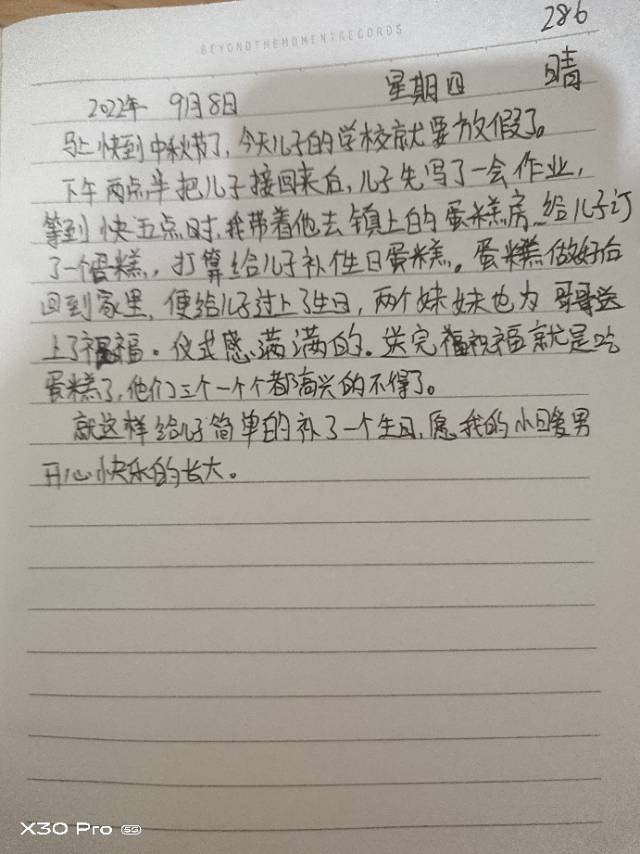 286
BEYONDTHEMOMENT:RECORDS
2022年 9月8日 星期四 晴
马上快到中秋节了,今天儿子的学校就要放假了。
下午两点半把儿子接回来后,儿子先写了一会作业,
等到快五点时,我带着他去镇上的蛋糕房给儿子订
了一个蛋糕,打算给儿子补住日蛋糕。蛋糕做好后
回到家里,便给儿子过上了生日,两个妹妹也为哥哥送
上了祝福。仪式感满满的。送完福祝福就是吃
蛋糕了,他们三个一个个都高兴的不得了。
就这样给儿子简单的补了一个生日,愿我的小男
开心快乐的长大。
X30 Pro 5G